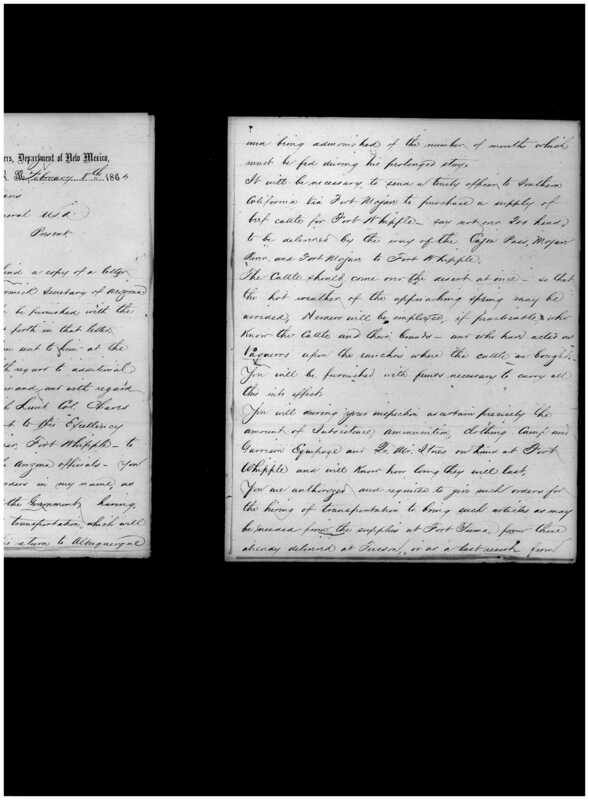 ers, Department of New Mexico,
February 8th, 1864
eral U.S.A.
Present
a copy of a letter
Secretary of Arizona
be furnished with the
forth in that letter.
sent to him at the
regard to additional
and, and with regard
Lieut Col. Chaves
t to His Excellency
Fort Whipple - to
Arizona officials - You
orders in my name, as
the Government, having
transportation, which will
return to Albuquerque
mind being admonished of the number of months which
must be fed during his prolonged stay.
It will be necessary to send a timely officer to Southern
California via Fort Mojave to purchase a supply of
beef cattle for Fort Whipple - say not over 200 head,
to be delivered by the way of the Cajon Pass, Mojave
River and Fort Mojave to Fort Whipple.
The Cattle should come over the desert at once - so that
the hot weather of the approaching spring may be
avoided, will be employed, if practicable, who
know the Cattle and their brands - and who have acted as
Vaqueros upon the ranchos where the cattle are bought.
You will be furnished with funds necessary to carry all
this into effect.
You will during your inspection ascertain precisely the
amount of Subsistence, ammunition, clothing Camp and
Garrison Equipage and Qr. Mr. Stores on hand at Fort
Whipple and will know how long they will last.
You are authorized and required to give such orders for
the hiring of transportation to bring such articles as may
be needed from the supplies at Fort Yuma, from those
already delivered at Tucson, or as a last resort from